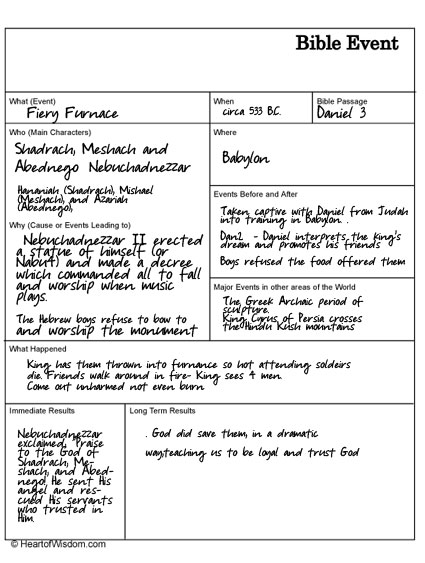 Bible Event
What (Event)
Fiery Furnace
When
circa 533 BC.
Bible Passage
Daniel 3
Who (Main Characters)
Shadrach, Meshach and
Abednego Nebuchadnezzar
Hananiah (Shadrach), Mishael
(Meshach), and Azariah
(Abednego),
Where
Babylon
Events Before and After
Taken captive with Daniel from Judah
into training in Babylon. .
Dan2 - Daniel interprets the king's
dream and promotes his friends
Boys refused the food offered them
Why (Cause or Events Leading to)
Nebuchadnezzar II erected
a statue of himself (or
and made a decree
which commanded all to fall
and worship when music
plays.
The Hebrew boys refuse to bow to
and worship the monument
Major Events in other areas of the World
The Greek Archaic period of
sculpture.
King Cyrus of Persia crosses
the Hindu Kush mountains
What Happened
King has them thrown into furnance so hot attending soldeirs
die. Friends walk around in fire- King sees 4 men.
Come out unharmed not even burn
Immediate Results
Nebuchadnezzar
exclaimed, Praise
to the God of
Shadrach, Me-
shach, and Abed-
nego! He sent His
angel and res-
cued His servants
who trusted in
Him.
Long Term Results
. God did save them, in a dramatic
way,teaching us to be loyal and trust God
© HeartofWisdom.com